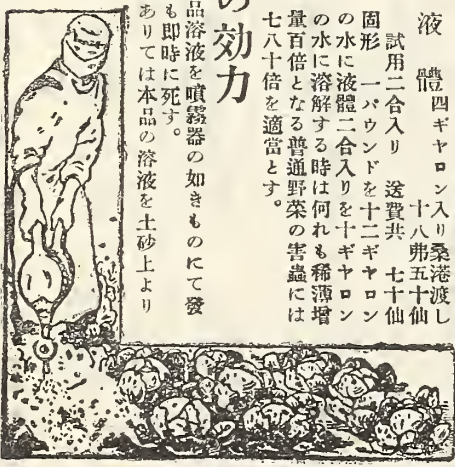 液體 四ギヤロン入り桑港渡し
十八弗五十仙
試用二合入り 送費共 七十仙
固形 一パウンドを十二ギヤロン
の水に液體二合入りを十ギヤロン
の水に溶解する時は何れも稀薄增
量百倍となる普通野菜の害蟲には
七八十倍を適當とす。
の効力
品溶液を噴霧器の如きものにて發
も即時に死す。
ありては本品の溶液を土砂上より